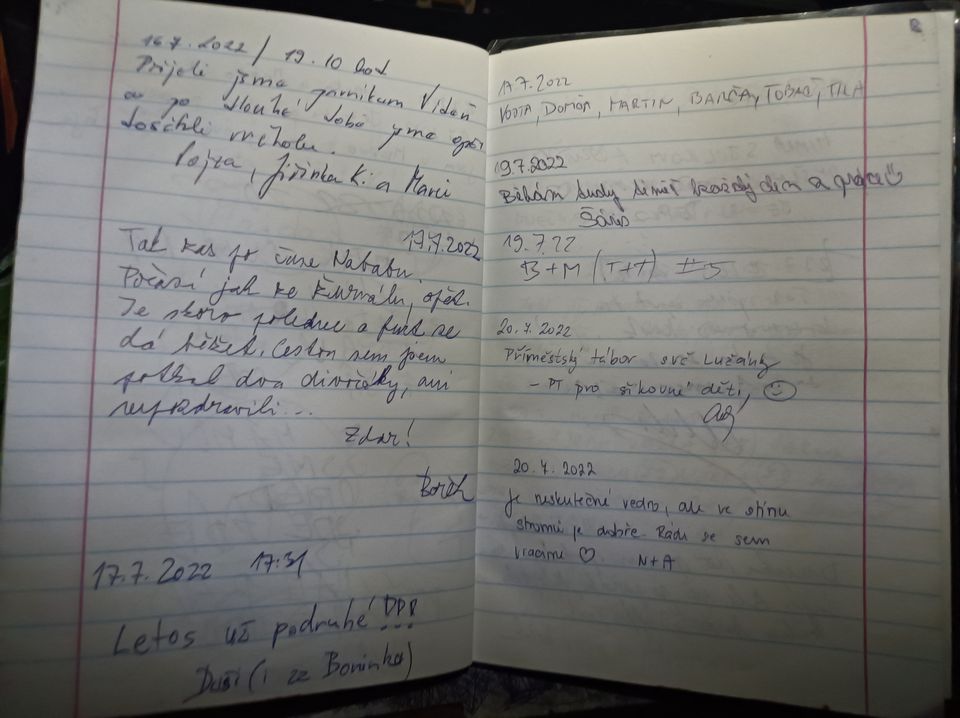 16.7.2022 / 19.10 hod
Přijeli jsme parníkem Vídeň
a po dlouhé době jsme opět
dosáhli vrcholu.
Pojza, Jiřinka K. a Marci
17.7.2022
Tak zas po čase Nababu.
Počasí jak ke Žurnálu, opět.
Je skoro poledne a furt se
dá běžet. Cestou sem jsem
potkal dva divočáky, ani
nepozdravili...
Zdar!
17.7.2022 17:31
Letos už podruhé!!!
Duši (i ze Boninka)
17.7.2022
VOJTA, DOMČA, MARTIN, BARČA, TOBÁČ,
19.7.2022
Běhám tudy téměř každý den a práce
19.7.22
B+M (T+T)
20.7.2022
Příměstský tábor SVČ Lužánky
- PT pro šikovné děti,
20.7.2022
Je neskutečné vedro, ale ve stínu
stromů je dobře. Rádi se sem
vracíme ♡ N+A